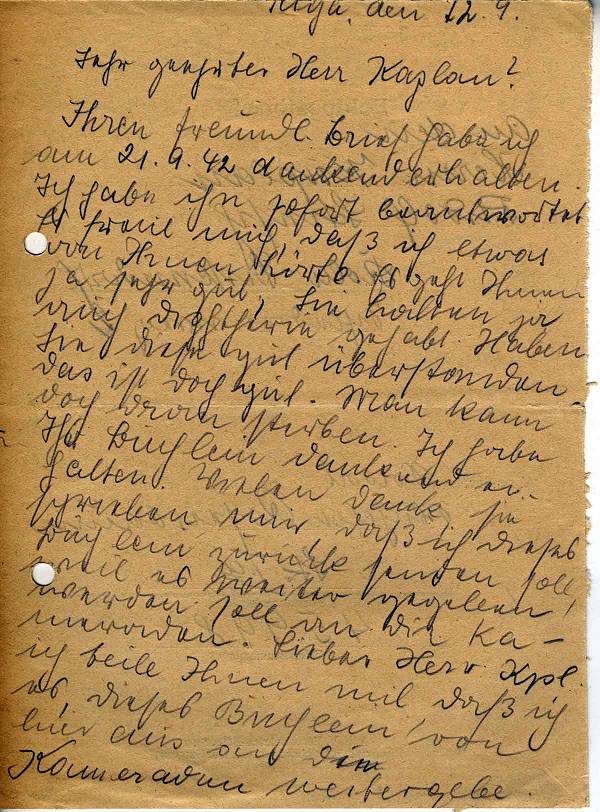 den 12.9.
Sehr geehrter Herr Kaplan!
Ihren freundl. Brief habe ich
am 21.9.42 dankend erhalten.
Ich habe ihn sofort beantwortet
Es freut mich, daß ich etwas
von Ihnen hörte. Es geht Ihnen
ja sehr gut, Sie hatten ja
auch Dightherie gehabt. Haben
Sie diese gut überstanden
das ist doch gut. Man kann
doch dran sterben. Ich habe
Ihr Büchlein dankend er-
halten. Vielen Dank. Sie
schrieben mir, daß ich dieses
Büchlein zurück senden soll,
weil es weiter gegeben
werden soll an die Ka-
meraden. Lieber Herr Kpl.
ich teile Ihnen mit daß ich
es, dieses Büchlein, von
hier aus an die
Kameraden weitergebe.